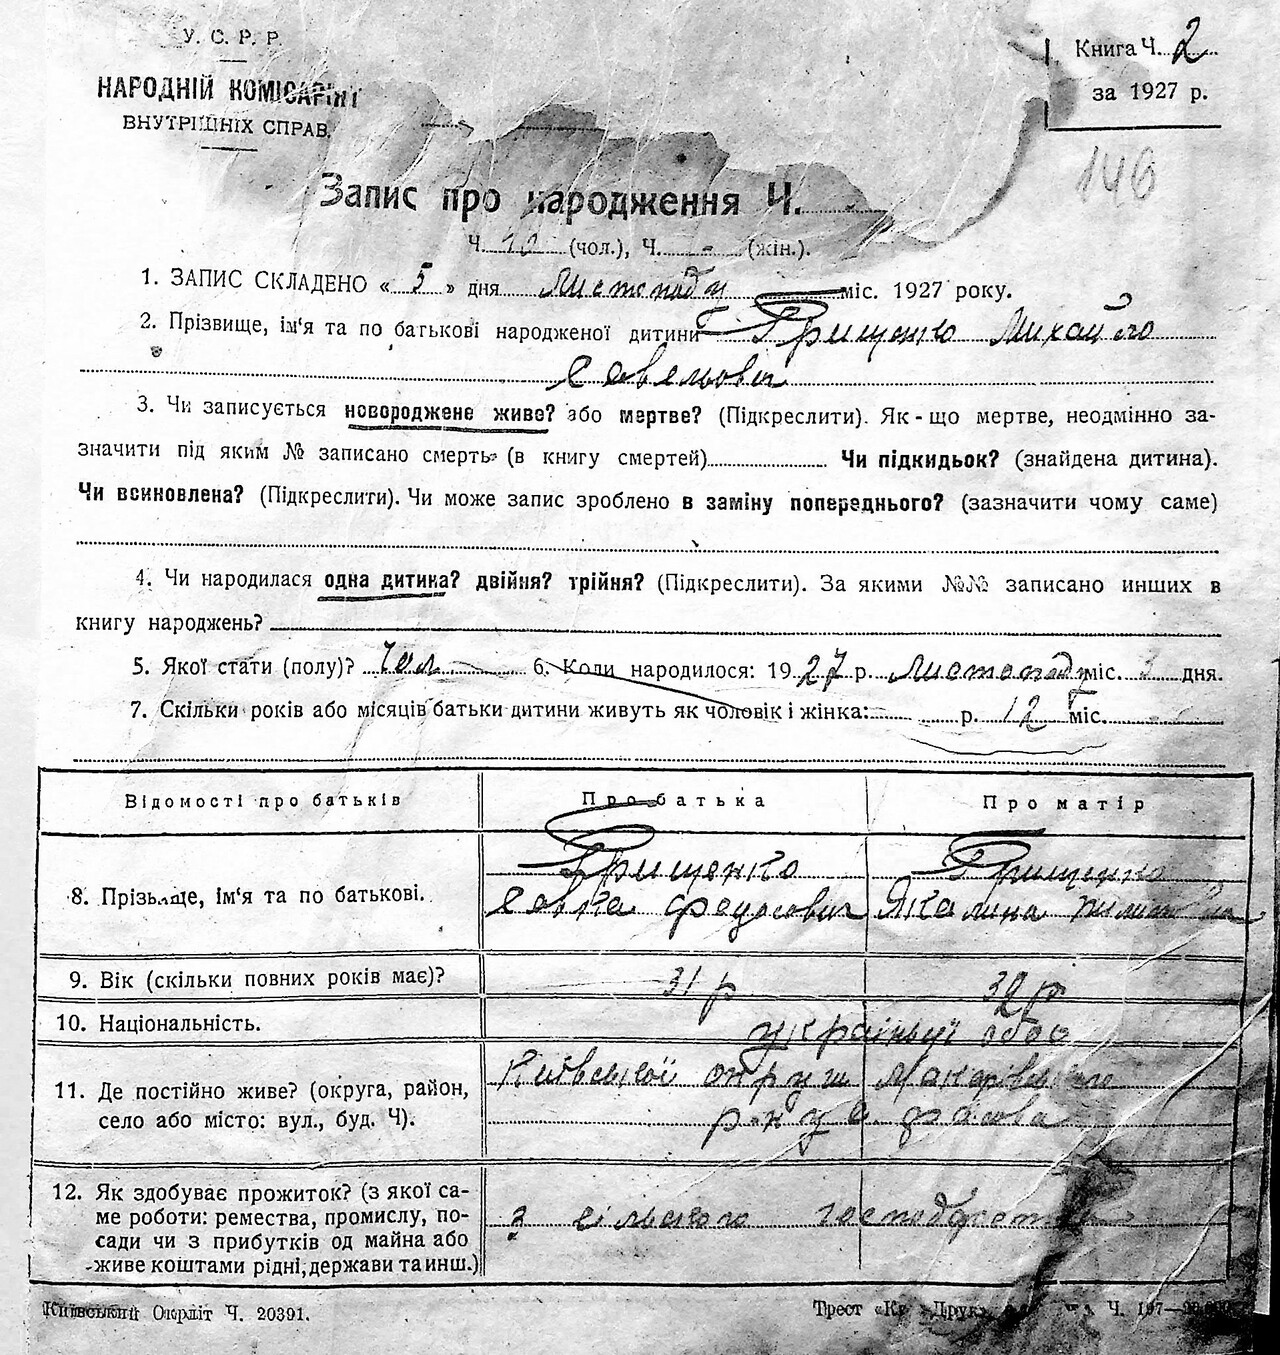 У. С. Р. Р.
НАРОДНІЙ КОМІСАРІЯТ
ВНУТРІШНІХ СПРАВ.
Книга Ч. 2
за 1927 р.
146
Запис про народження Ч.
Ч. 10 (чол.), Ч. - (жін.).
1. ЗАПИС СКЛАДЕНО « 5 » дня Листопаду міс. 1927 року.
2. Прізвище, ім'я та по батькові народженої дитини Грищенко Михайло
Савельович
3. Чи записується новороджене живе? або мертве? (Підкреслити). Як-що мертве, неодмінно за-
значити під яким № записано смерть (в книгу смертей) Чи підкидьок? (знайдена дитина).
Чи всиновлена? (Підкреслити). Чи може запис зроблено в заміну попереднього? (зазначити чому саме)
4. Чи народилася одна дитина? двійня? трійня? (Підкреслити). За якими №№ записано инших в
книгу народжень?
5. Якої стати (полу)? Чол 6. Коли народилося: 1927 р. Листопаду міс. 3 дня.
7. Скільки років або місяців батьки дитини живуть як чоловік і жінка: р. 12 міс.
Відомості про батьків Про батька Про матір
8. Прізьвище, ім'я та по батькові. Грищенко Грищенко
Савка Федосович Якилина
9. Вік (скільки повних років має)? 31 р 32 р
10. Національність. обоє
11. Де постійно живе? (округа, район, Київської округи Макарівського
село або місто: вул., буд. Ч). р-ну с.
12. Як здобуває прожиток? (з якої са-
ме роботи: ремества, промислу, по- З сільського господарства
сади чи з прибутків од майна або
живе коштами рідні, держави та инш.)
Київський Окрліт Ч. 20391.
Трест «Ки Друк» Ч. 197—